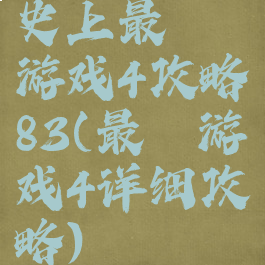 史上最
游戏4攻略
83(最 游
戏4详细攻
略)